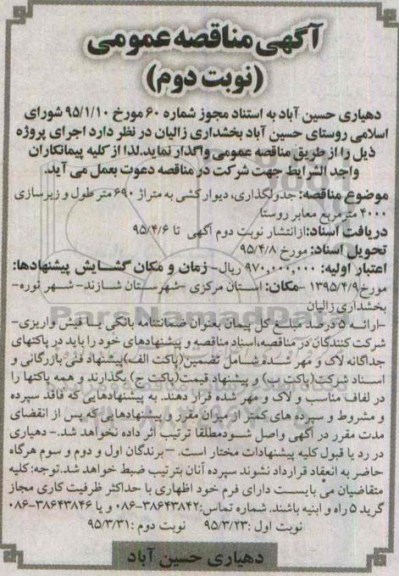 آگهی مناقصه عمومی
(نوبت دوم)
دهیاری حسین آباد به استناد مجوز شماره ۶۰ مورخ ۹۵/۱/۱۰ شورای
اسلامی روستای حسین آباد بخشداری زالیان در نظر دارد اجرای پروژه
ذیل را از طریق مناقصه عمومی واگذار نماید.لذا از کلیه پیمانکاران
واجد الشرایط جهت شرکت در مناقصه دعوت بعمل می آید.
موضوع مناقصه: جدولگذاری، دیوارکشی به متراژ ۶۹۰ متر طول و زیرسازی
۴۰۰۰ مترمربع معابر روستا
دریافت اسناد:ازانتشار نوبت دوم آگهی تا ۹۵/۴/۶
تحویل اسناد: مورخ ۹۵/۴/۸
اعتبار اولیه: ۹۷۰,۰۰۰,۰۰۰ ریال- زمان و مکان گشایش پیشنهادها:
مورخ۱۳۹۵/۴/۹ -مکان: استان مرکزی -شهرستان شازند- شهر نوره-
بخشداری زالیان
-ارائه ۵ درصد مبلغ کل پیمان بعنوان ضمانتنامه بانکی یا فیش واریزی-
شرکت کنندگان در مناقصه،اسناد مناقصه و پیشنهادهای خود را باید در پاکتهای
جداگانه لاک و مهر شده شامل تضمین(پاکت الف)پیشنهاد فنی بازرگانی و
اسناد شرکت(پاکت ب) و پیشنهاد قیمت(پاکت ج) بگذارند و همه پاکتها را
در لفاف مناسب و لاک و مهر شده قرار دهند. به پیشنهادهایی که فاقد سپرده
و مشروط و سپرده های کمتر از میزان مقرر و پیشنهادهایی که پس از انقضای
مدت مقرر در آگهی واصل شودمطلقا ترتیب اثر داده نخواهد شد.- دهیاری
در رد یا قبول کلیه پیشنهادات مختار است. -برندگان اول و دوم و سوم هرگاه
حاضر به انعقاد قرارداد نشوند سپرده آنان بترتیب ضبط خواهد شد.توجه:کلیه
متقاضیان می بایست دارای فرم خود اظهاری با حداکثر ظرفیت کاری مجاز
گرید ۵ راه و ابنیه باشند. شماره تماس:۳۸۶۴۳۸۴۲-۰۸۶ و یا ۳۸۶۴۳۸۴۶-۰۸۶
نوبت اول :۹۵/۳/۲۳ نوبت دوم :۹۵/۳/۳۱
دهیاری حسین آباد
ParsNamadData